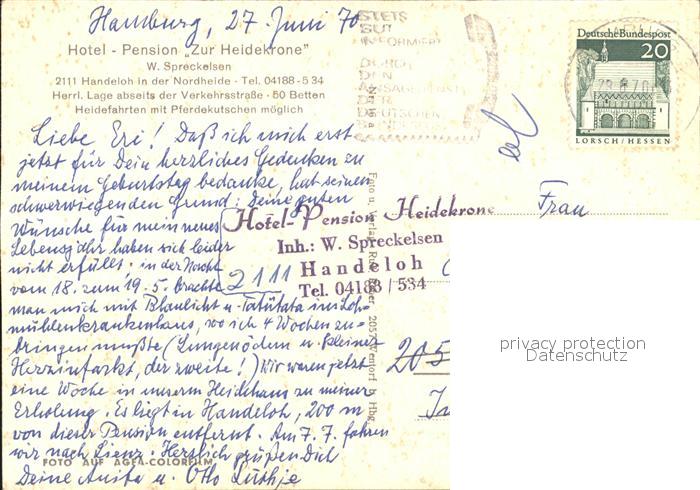 Hamburg, 27. Juni 70
Hotel - Pension „Zur Heidekrone"
W. Spreckelsen
2111 Handeloh in der Nordheide - Tel. 04188 - 5 34
Herrl. Lage abseits der Verkehrsstraße - 50 Betten
Heidefahrten mit Pferdekutschen möglich
STETS
GUT
INFORMIERT
DURCH
DEN
ANSAGEDIENST
DER
DEUTSCHEN
Deutsche Bundespost
20
LORSCH / HESSEN
Liebe Eri! Daß ich mich erst
jetzt für Dein herzliches Gedenken zu
meinem Geburtstag bedanke, hat seinen
schwerwiegenden Grund: Deine guten
Wünsche für mein neues
Lebensjahr haben sich leider
nicht erfüllt: in der Nacht
vom 18. zum 19. 5. brachte
man mich mit Blaulicht u. Tatütata ins Loh-
mühlenkrankenhaus, wo ich 4 Wochen zu=
bringen mußte (Lungenödem u. kleiner
Herzinfarkt, der zweite!) Wir waren jetzt
eine Woche in unserm Heidehaus zu meiner
Erholung. Es liegt in Handeloh, 200 m
von dieser Pension entfernt. Am 7. 7. fahren
wir nach Lienz. Herzlich grüßen Dich
Deine Anita u. Otto Lüthje
FOTO AUF AGFA-COLORFILM
Hotel-Pension Heidekrone
Inh.: W. Spreckelsen
2111 Handeloh
Tel. 04188 / 534
Foto u. Verlag
2057 Wentorf b. Hbg.
Frau
205
privacy protection
Datenschutz